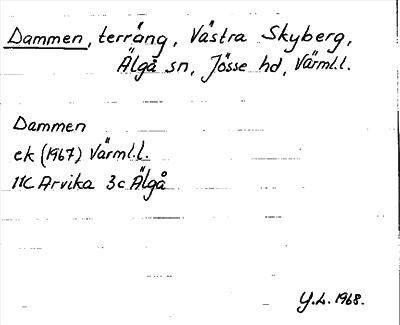 Dammen, terräng, Västra Skyberg,
Älgå sn, Jösse hd, Värml.l.
Dammen
ek (1967) Värml.l.
11C Arvika 3c Älgå
Y.L. 1968.